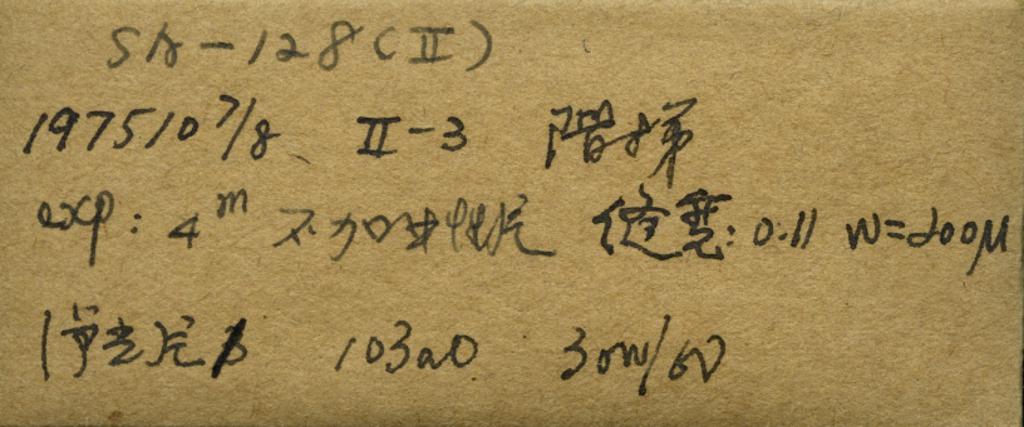 SA-128(II)
1975 10 7/8、 II-3 階梯
exp: 4m 不加 片 缝宽: 0.11 W=200μ
片 103aO 30W/6V